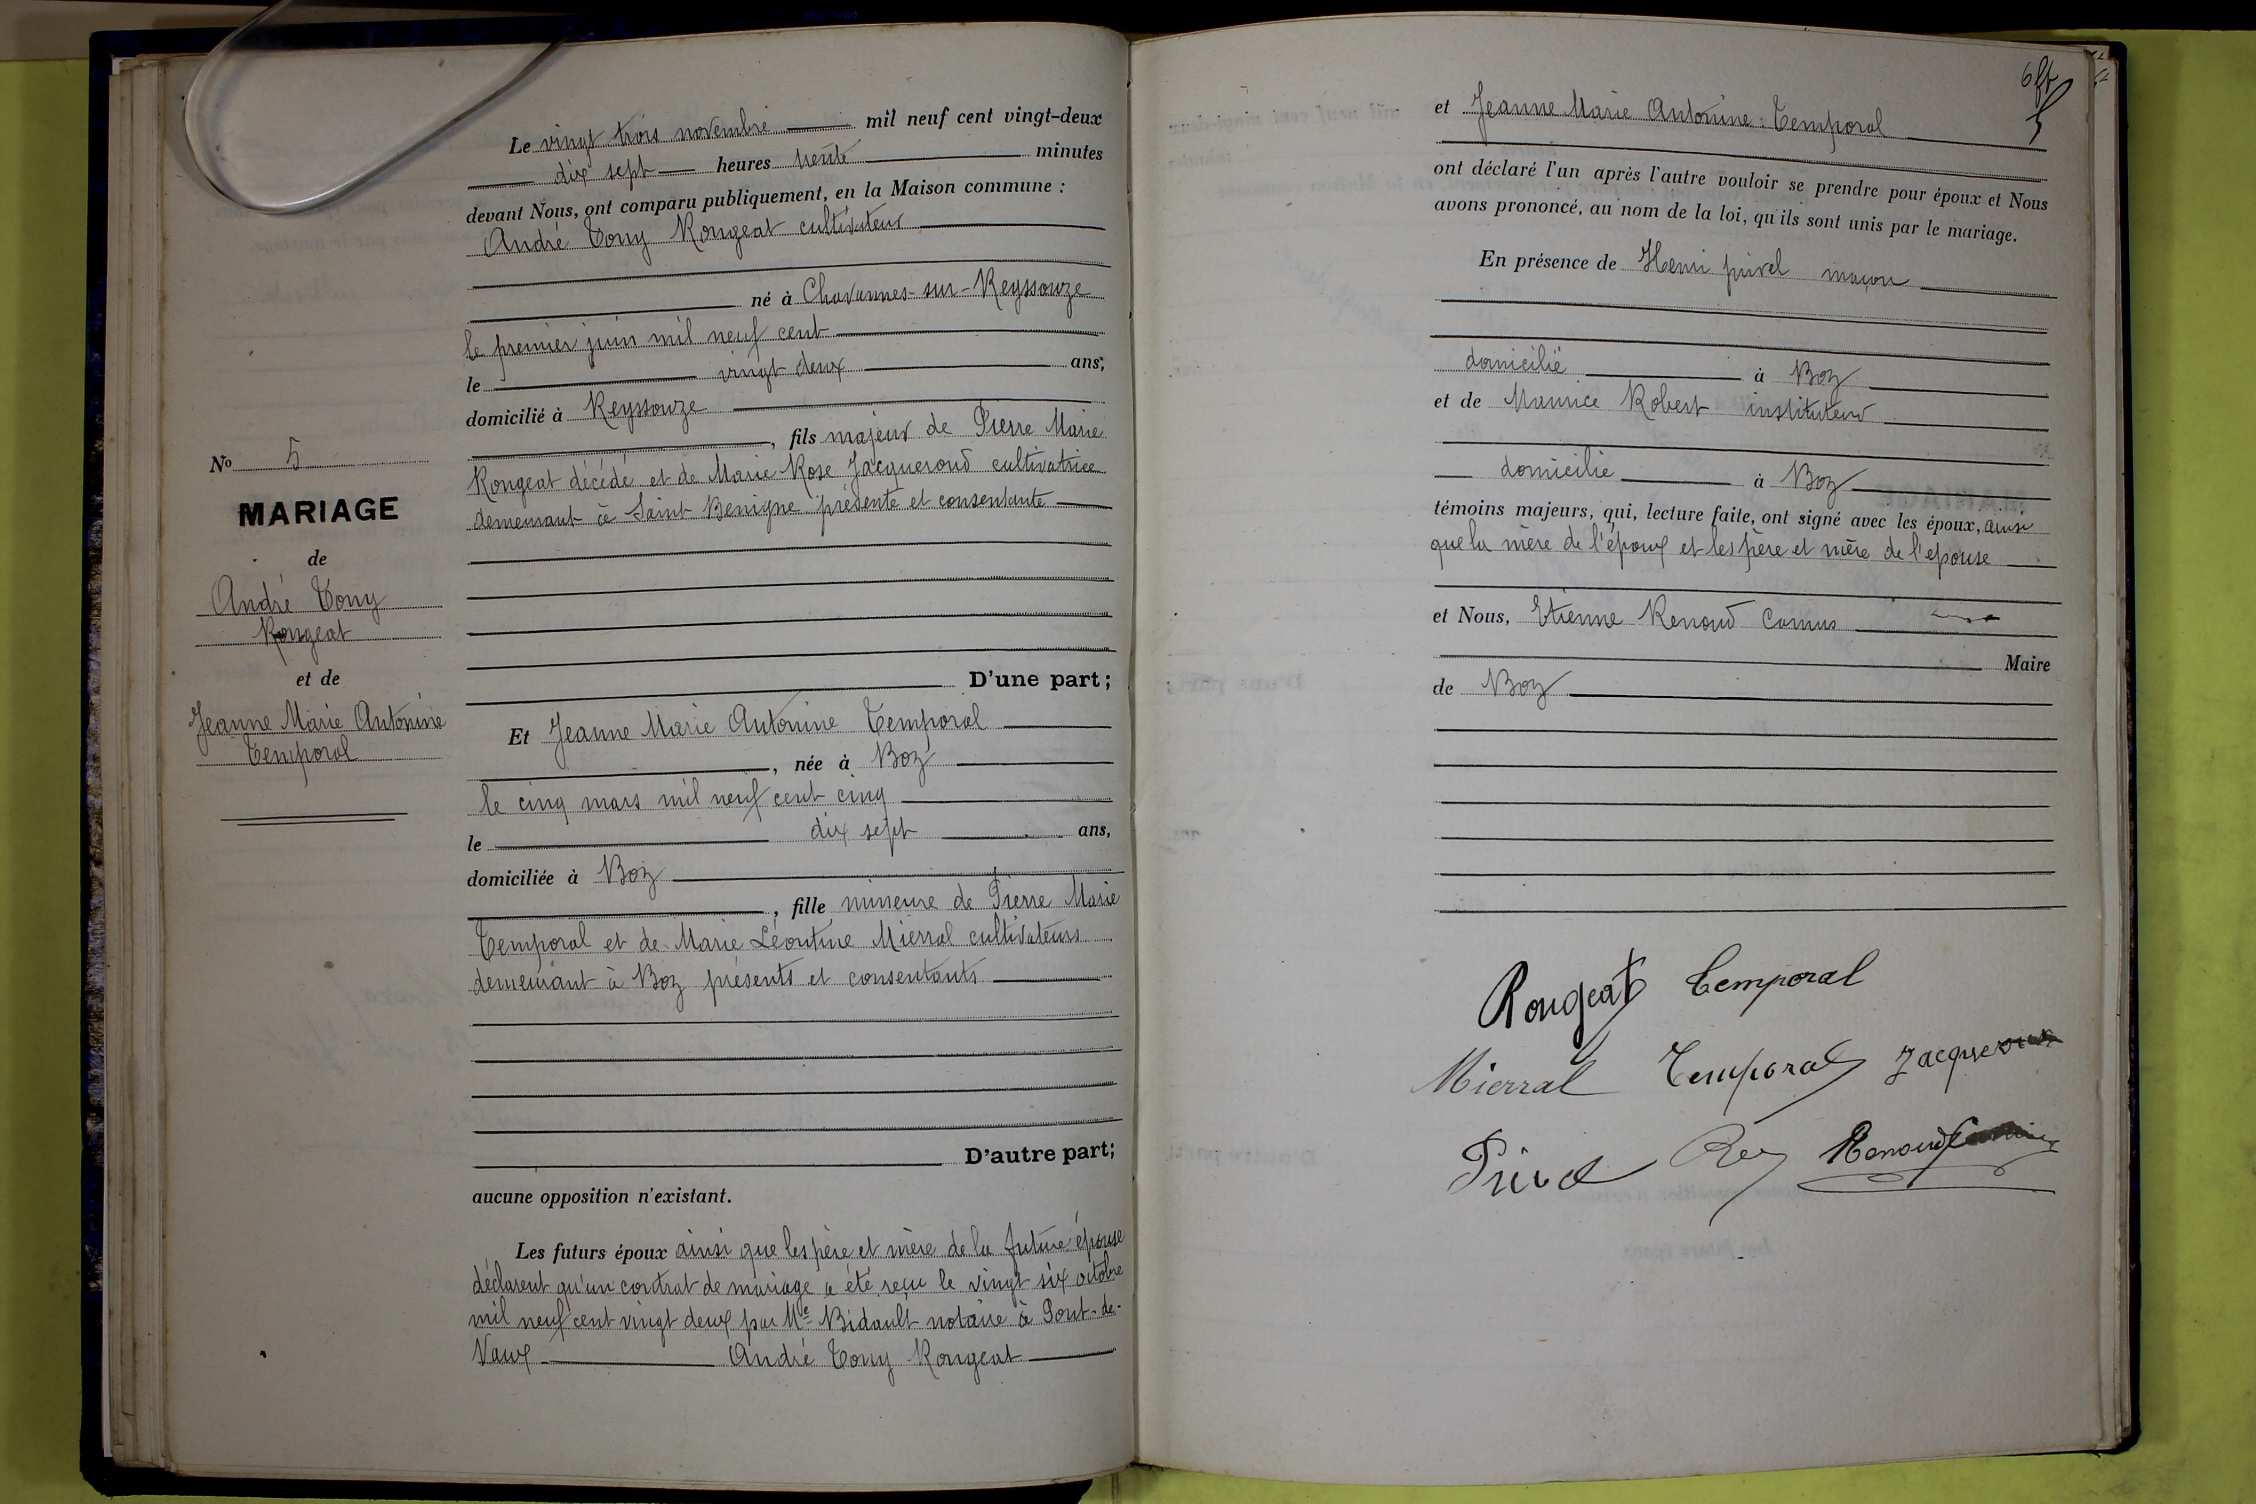 N° 5
MARIAGE
de
André Tony
Rongeat
et de
Jeanne Marie Antonine
Temporal
Le vingt trois novembre mil neuf cent vingt-deux
dix sept heures trente minutes
devant Nous, ont comparu publiquement, en la Maison commune :
André Tony Rongeat cultivateur
né à Chavannes-sur-Reyssouze
le premier juin mil neuf cent
le vingt deux ans,
domicilié à Reyssouze
, fils majeur de Pierre Marie
Rongeat décédé et de Marie Rose Jacqueroud cultivatrice
demeurant à Saint Benigne présente et consentante
D'une part ;
Et Jeanne Marie Antonine Temporal
, née à Boz
le cinq mars mil neuf cent cinq
le dix sept ans,
domiciliée à Boz
, fille mineure de Pierre Marie
Temporal et de Marie Léontine Mierral cultivateurs
demeurant à Boz présents et consentants
D'autre part ;
aucune opposition n'existant.
Les futurs époux ainsi que les père et mère de la future épouse
déclarent qu'un contrat de mariage a été reçu le vingt six octobre
mil neuf cent vingt deux par Me Bidault notaire à Pont-de-
Vaux André Tony Rongeat
et Jeanne Marie Antonine Temporal
ont déclaré l'un après l'autre vouloir se prendre pour époux et Nous
avons prononcé, au nom de la loi, qu'ils sont unis par le mariage.
En présence de Henri privel maçon
domicilié à Boz
et de Maurice Robert instituteur
domicilié à Boz
témoins majeurs, qui, lecture faite, ont signé avec les époux, ainsi
que la mère de l'époux et les père et mère de l'epouse
et Nous, Etienne Renoud Camus
Maire
de Boz
Rongeat Temporal
Mierral Temporal Jacqueroud
Privel Renoud